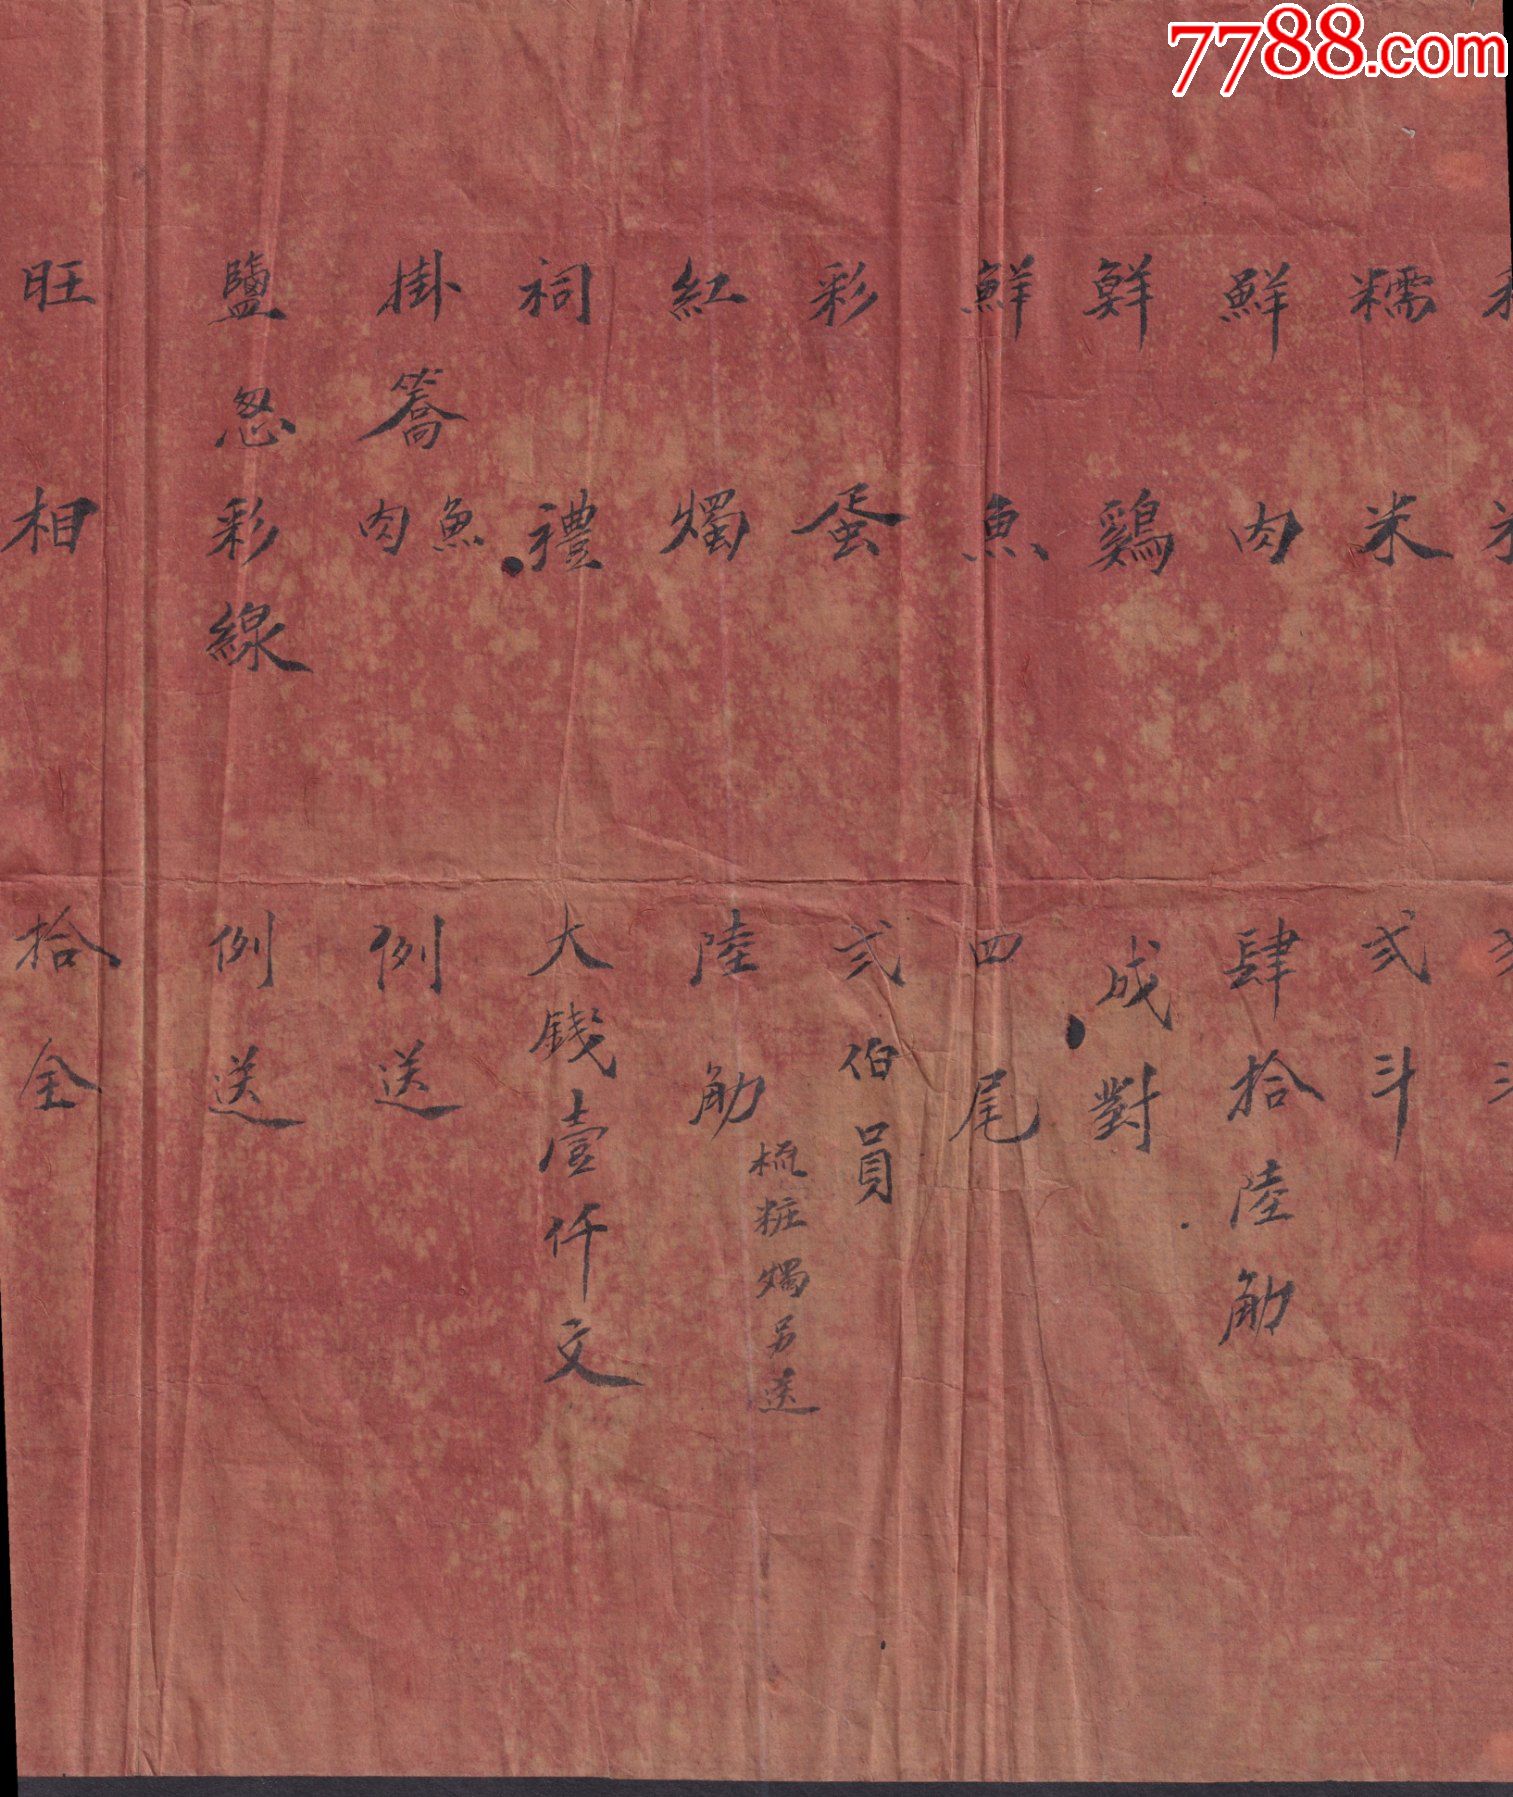 7788.com
糯米 弍斗
鮮肉 肆拾陸觔
鮮鷄 成對
鮮魚 四尾
彩蛋 弍伯員
紅燭 陸觔 梳粧燭另送
祠禮 大錢壹仟文
掛蒿 魚肉 例送
鹽怱彩線 例送
旺相 拾全